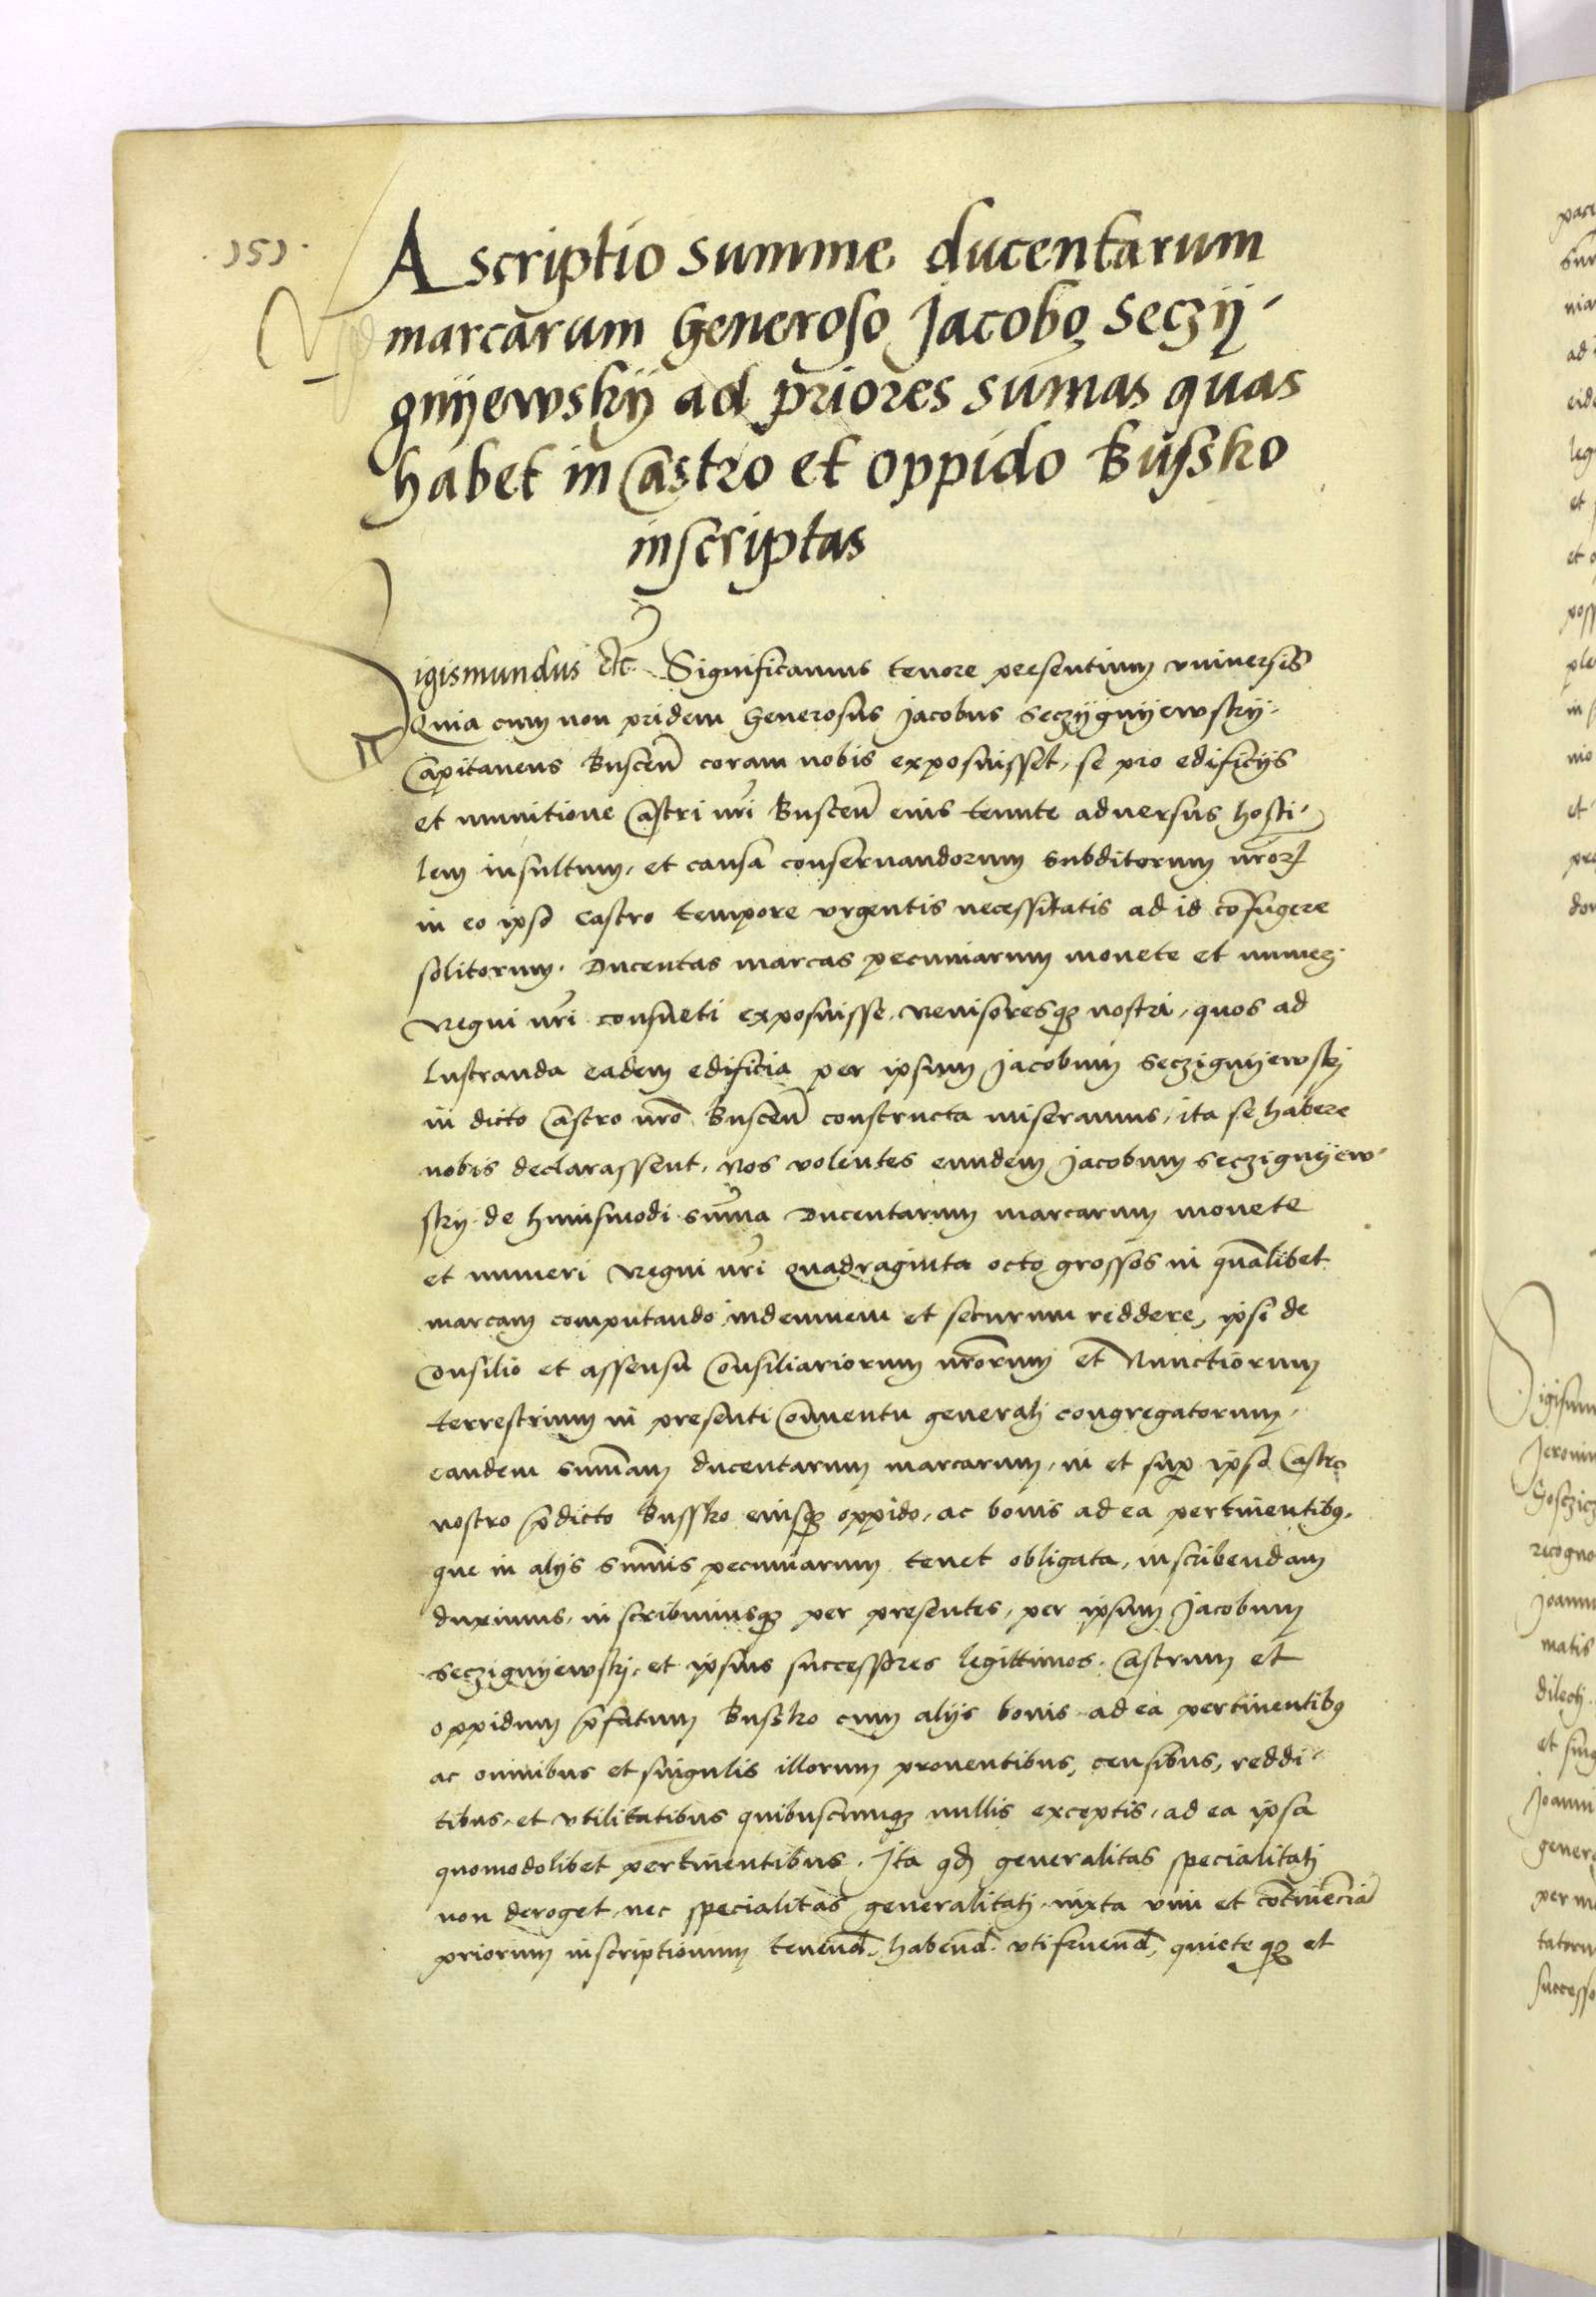 .151.
Ascriptio summe ducentarum
marcarum Generoso Jacobo Seczÿ-
gnÿewskÿ ad priores sum̄as quas
habet in Castro et oppido Bussko
inscriptas
Sigismundus etc̃ Significamus tenore presentium vniuersis
Quia cum non pridem Generosus Jacobus Seczÿgnÿewskÿ
Capitaneus Buscen̄ coram nobis exposuisset, se pro edificÿs
et munitione Castri nr̄i Buscen̄ eius tenute aduersus hosti-
lem insultum, et causa conseruandorum subditorum nr̄orꝝ
in eo ipso Castro tempore vrgentis necessitatis ad id cōfugere
solitorum, Ducentas marcas pecuniarum monete et numeri
Regni nr̄i consueti exposuisse, Reuisoresqꝫ nostri, quos ad
lustranda eadem edificia per ipsum Jacobum Seczignÿewskj
in dicto Castro nr̄o Buscen̄ constructa miseramus, ita se habere
nobis declarassent, Nos volentes eundem Jacobum Seczignÿew-
skÿ de huiusmodi sum̄a Ducentarum marcarum monete
et numeri Regni nr̄i Quadraginta octo grossos in qual̄ibet
marcam computando, indemnem et securum reddere, ipsi de
Consilio et assensu Consiliariorum nr̄orum et Nunctiorum
terrestrium in presenti Conuentu generalj congregatorum,
eandem sum̄am ducentarum marcarum, in et sup̱ ipso Castro
nostro p̄dicto Bussko eiusqꝫ oppido, ac bonis ad ea pertinentibꝰ,
que in alÿs sum̄is pecuniarum tenet obligata, inscribendam
duximus, inscribimusqꝫ per presentes, per ipsum Jacobum
Seczignÿewskj et ipsius successores legittimos, Castrum et
oppidum p̄fatum Bussko cum alÿs bonis ad ea pertinentibꝰ
ac omnibus et singulis illorum prouentibus, censibus, reddi-
tibus, et vtilitatibus quibuscumqꝫ nullis exceptis, ad ea ipsa
quomodolibet pertinentibus. Ita qd̄ generalitas specialitatj
non deroget, nec specialitas generalitatj, iuxta vim et cōtinēciā
priorum inscriptionum tenend̄, habend̄, vtifruend̄, quiete qꝫ et